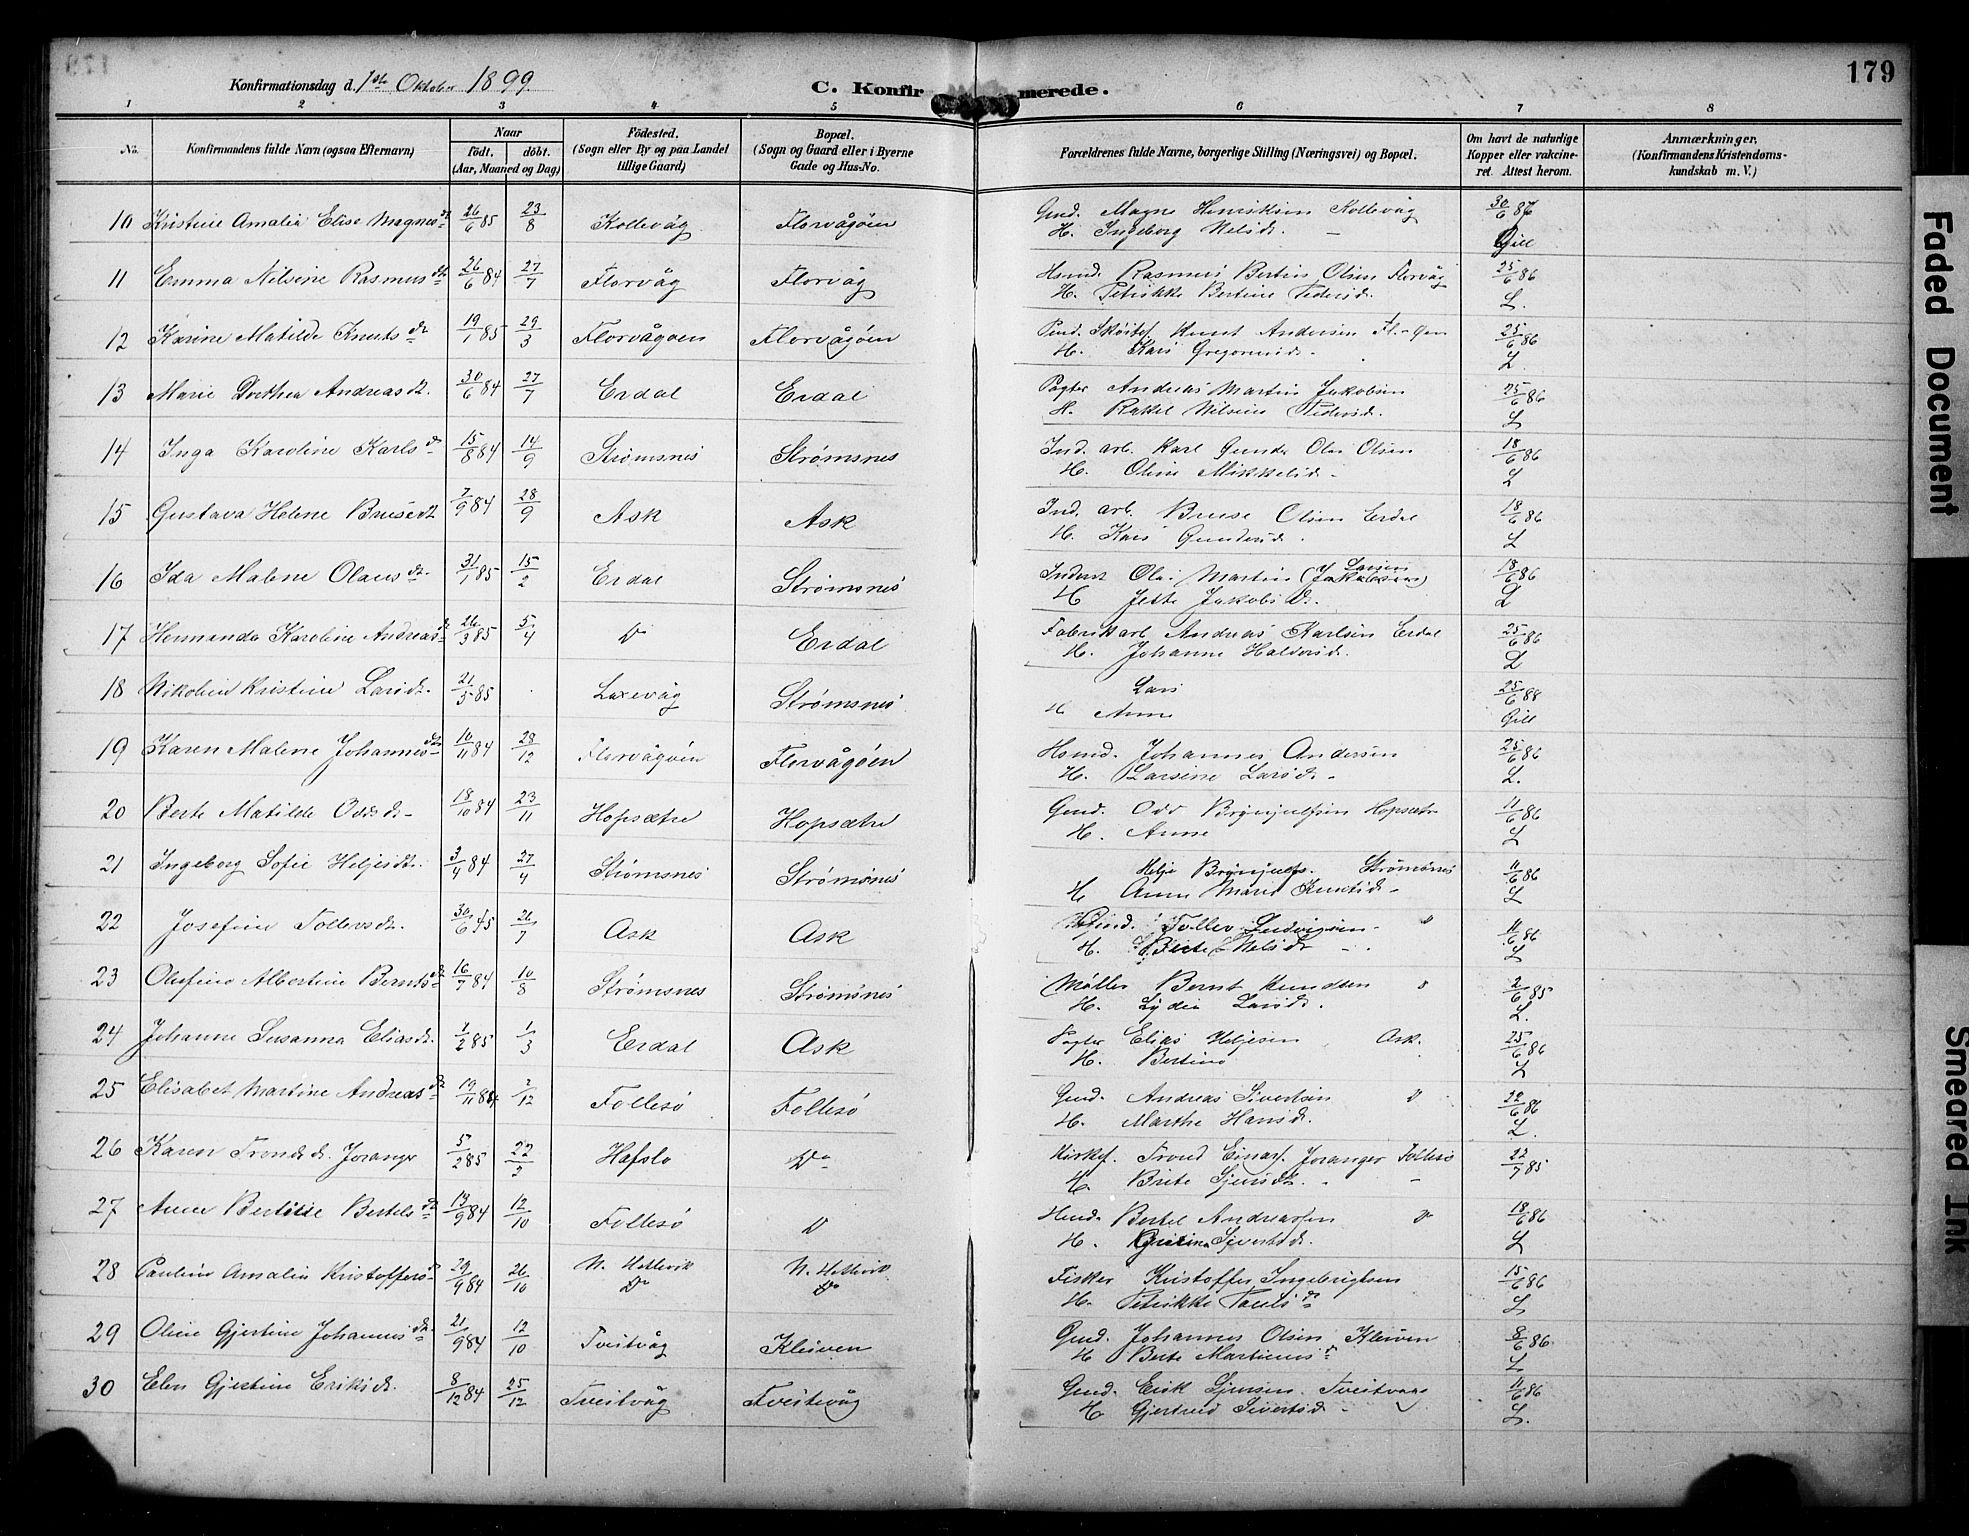 179
Konfirmationsdag d. 1ste Oktober 1899.
C. Konfirmerede.
1 2 3 4 5 6 7 8
No. Konfirmandens fulde Navn (ogsaa Efternavn) Naar født. døbt. (Aar, Maaned og Dag) Fødested. (Sogn eller By og paa Landet tillige Gaard) Bopæl. (Sogn og Gaard eller i Byerne Gade og Hus-No. Forældrenes fulde Navne, borgerlige Stilling (Næringsvei) og Bopæl. Om havt de naturlige Kopper eller vakcineret. Attest herom. Anmærkninger, (Konfirmandens Kristendomskundskab m. V.)
10 Kristine Amalia Elise Magnesdt 26/6 85 23/8 Kollevåg Florvågøen Gmd. Magne Henriksen Kollevåg 30/6 87
H. Ingeborg Nelsd. — Gill
11 Emma Nilsine Rasmusdt 26/6 84 27/7 Florvåg Florvåg Hsmd. Rasmus Bertin Olsen Florvåg 25/6 86
H. Petrikke Bertine Pedersd. L.
12 Karine Matilde Knutsdt 19/1 85 29/3 Florvågøen Florvågøen Knut Andersen Fl.-øen 25/6 86
H. Kari Gregoriusd. L.
13 Marie Dorthea Andreasdt. 30/6 84 27/7 Erdal Erdal Pagter Andreas Martin Jakobsen 25/6 86
H. Rakel Nilsine Pedersd. L
14 Inga Karoline Karlsdt 15/8 84 14/9 Strømsnes Strømsnes Ind. arb. Karl Gunder Olai Olsen 18/6 86
H. Oline Mikkelsd. L
15 Gustava Helene Brusedt 7/9 84 28/9 Ask Ask Ind. arb. Bruse Olsen Erdal 18/6 86
H. Kari Gundersd. L
16 Ida Malene Olausdt. 31/1 85 15/2 Erdal Strømsnes Inderst Olai Martin (Jakobsen) Larsen 18/6 86
H Jette Jakobsdt. L
17 Hermanda Karoline Andreasdt 26/3 85 5/4 Do Erdal Fabrikarb. Andreas Karlsen Erdal 25/6 86
H. Johanne Haldorsd. L
18 Nikoline Kristine Larsdt. 21/5 85 Laxevåg Strømsnes Lars 25/6 88
H Anne Gill
19 Karen Malene Johannesdt 10/11 84 28/12 Florvågøen Florvågøen Hsmd. Johannes Andersen 25/6 86
H. Larsine Larsd. L.
20 Berte Matilde Oddsdt 18/10 84 23/11 Hopsætre Hopsætre Gmd. Odd Brynjulfsen Hopsætre 11/6 86
H. Anne L
21 Ingeborg Sofie Heljesdt. 3/4 84 27/4 Strømsnes Strømsnes Helje Brynjulfs. Strømsnes 11/6 86
H Anne Marie Knutsd. L
22 Josefine Tollevsdt. 30/6 45 26/7 Ask Ask Tollev Ludvigsen 11/6 86
H. Berte Nelsdt L
23 Olufine Albertine Berntsdt 16/7 84 10/8 Strømsnes Strømsnes Møller Bernt Knudsen 2/6 85
H. Lydia Larsd. L.
24 Johanne Susanna Eliasdt. 1/2 85 1/3 Erdal Ask Pagter Elias Heljesen Ask. 25/6 86
H. Bertine L
25 Elisabet Martine Andreasdt 19/11 84 2/12 Follesø Follesø Gmd. Andreas Sivertsen Do 22/6 86
H. Marthe Hansd. L.
26 Karen Trondsdt. Joranger 5/2 85 22/2 Hafslo Do Kirkes. Trond Einars. Joranger Follesø 22/7 85
H. Brite Sjursdt.
27 Anne Bertine Bertelsdt 13/9 84 12/10 Follesø Do Hmd. Bertel Andreassen Do 18/6 86
H. Sivertsd. L
28 Pauline Amalia Kristoffersdt 29/9 84 26/10 N. Hettevik Do N. Hettevik Do Fisker Kristoffer Ingebrigtsen 15/6 86
H. Petrikke Poulsdt L
29 Oline Gjertine Johannesdt. 21/9 84 12/10 Tveitvåg Kleiven Gmd. Johannes Olsen Kleiven 8/6 86.
H Berte Martinusdt L
30 Elen Gjertine Eriksdt. 8/12 84 25/12 Tveitvåg Tveitevåg Gmd. Erik Sjursen Tveitvaag 11/6 86
H. Gjertrud Sivertsd L.
Faded Document
Smeared Ink